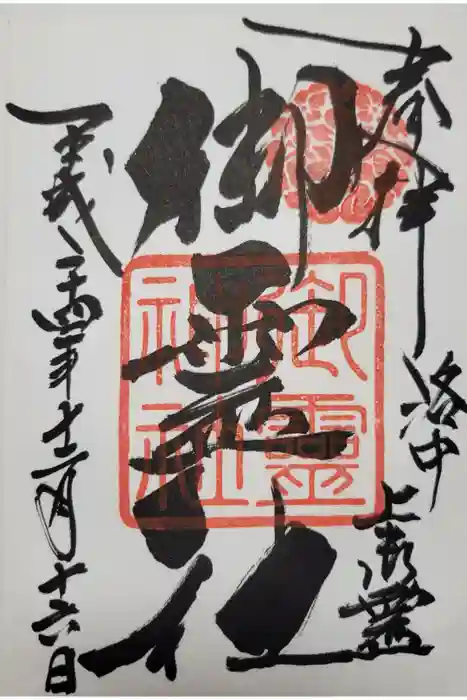 奉拝
洛中
上御霊
御霊神社
御霊
神社
平成二十四年十二月十六日